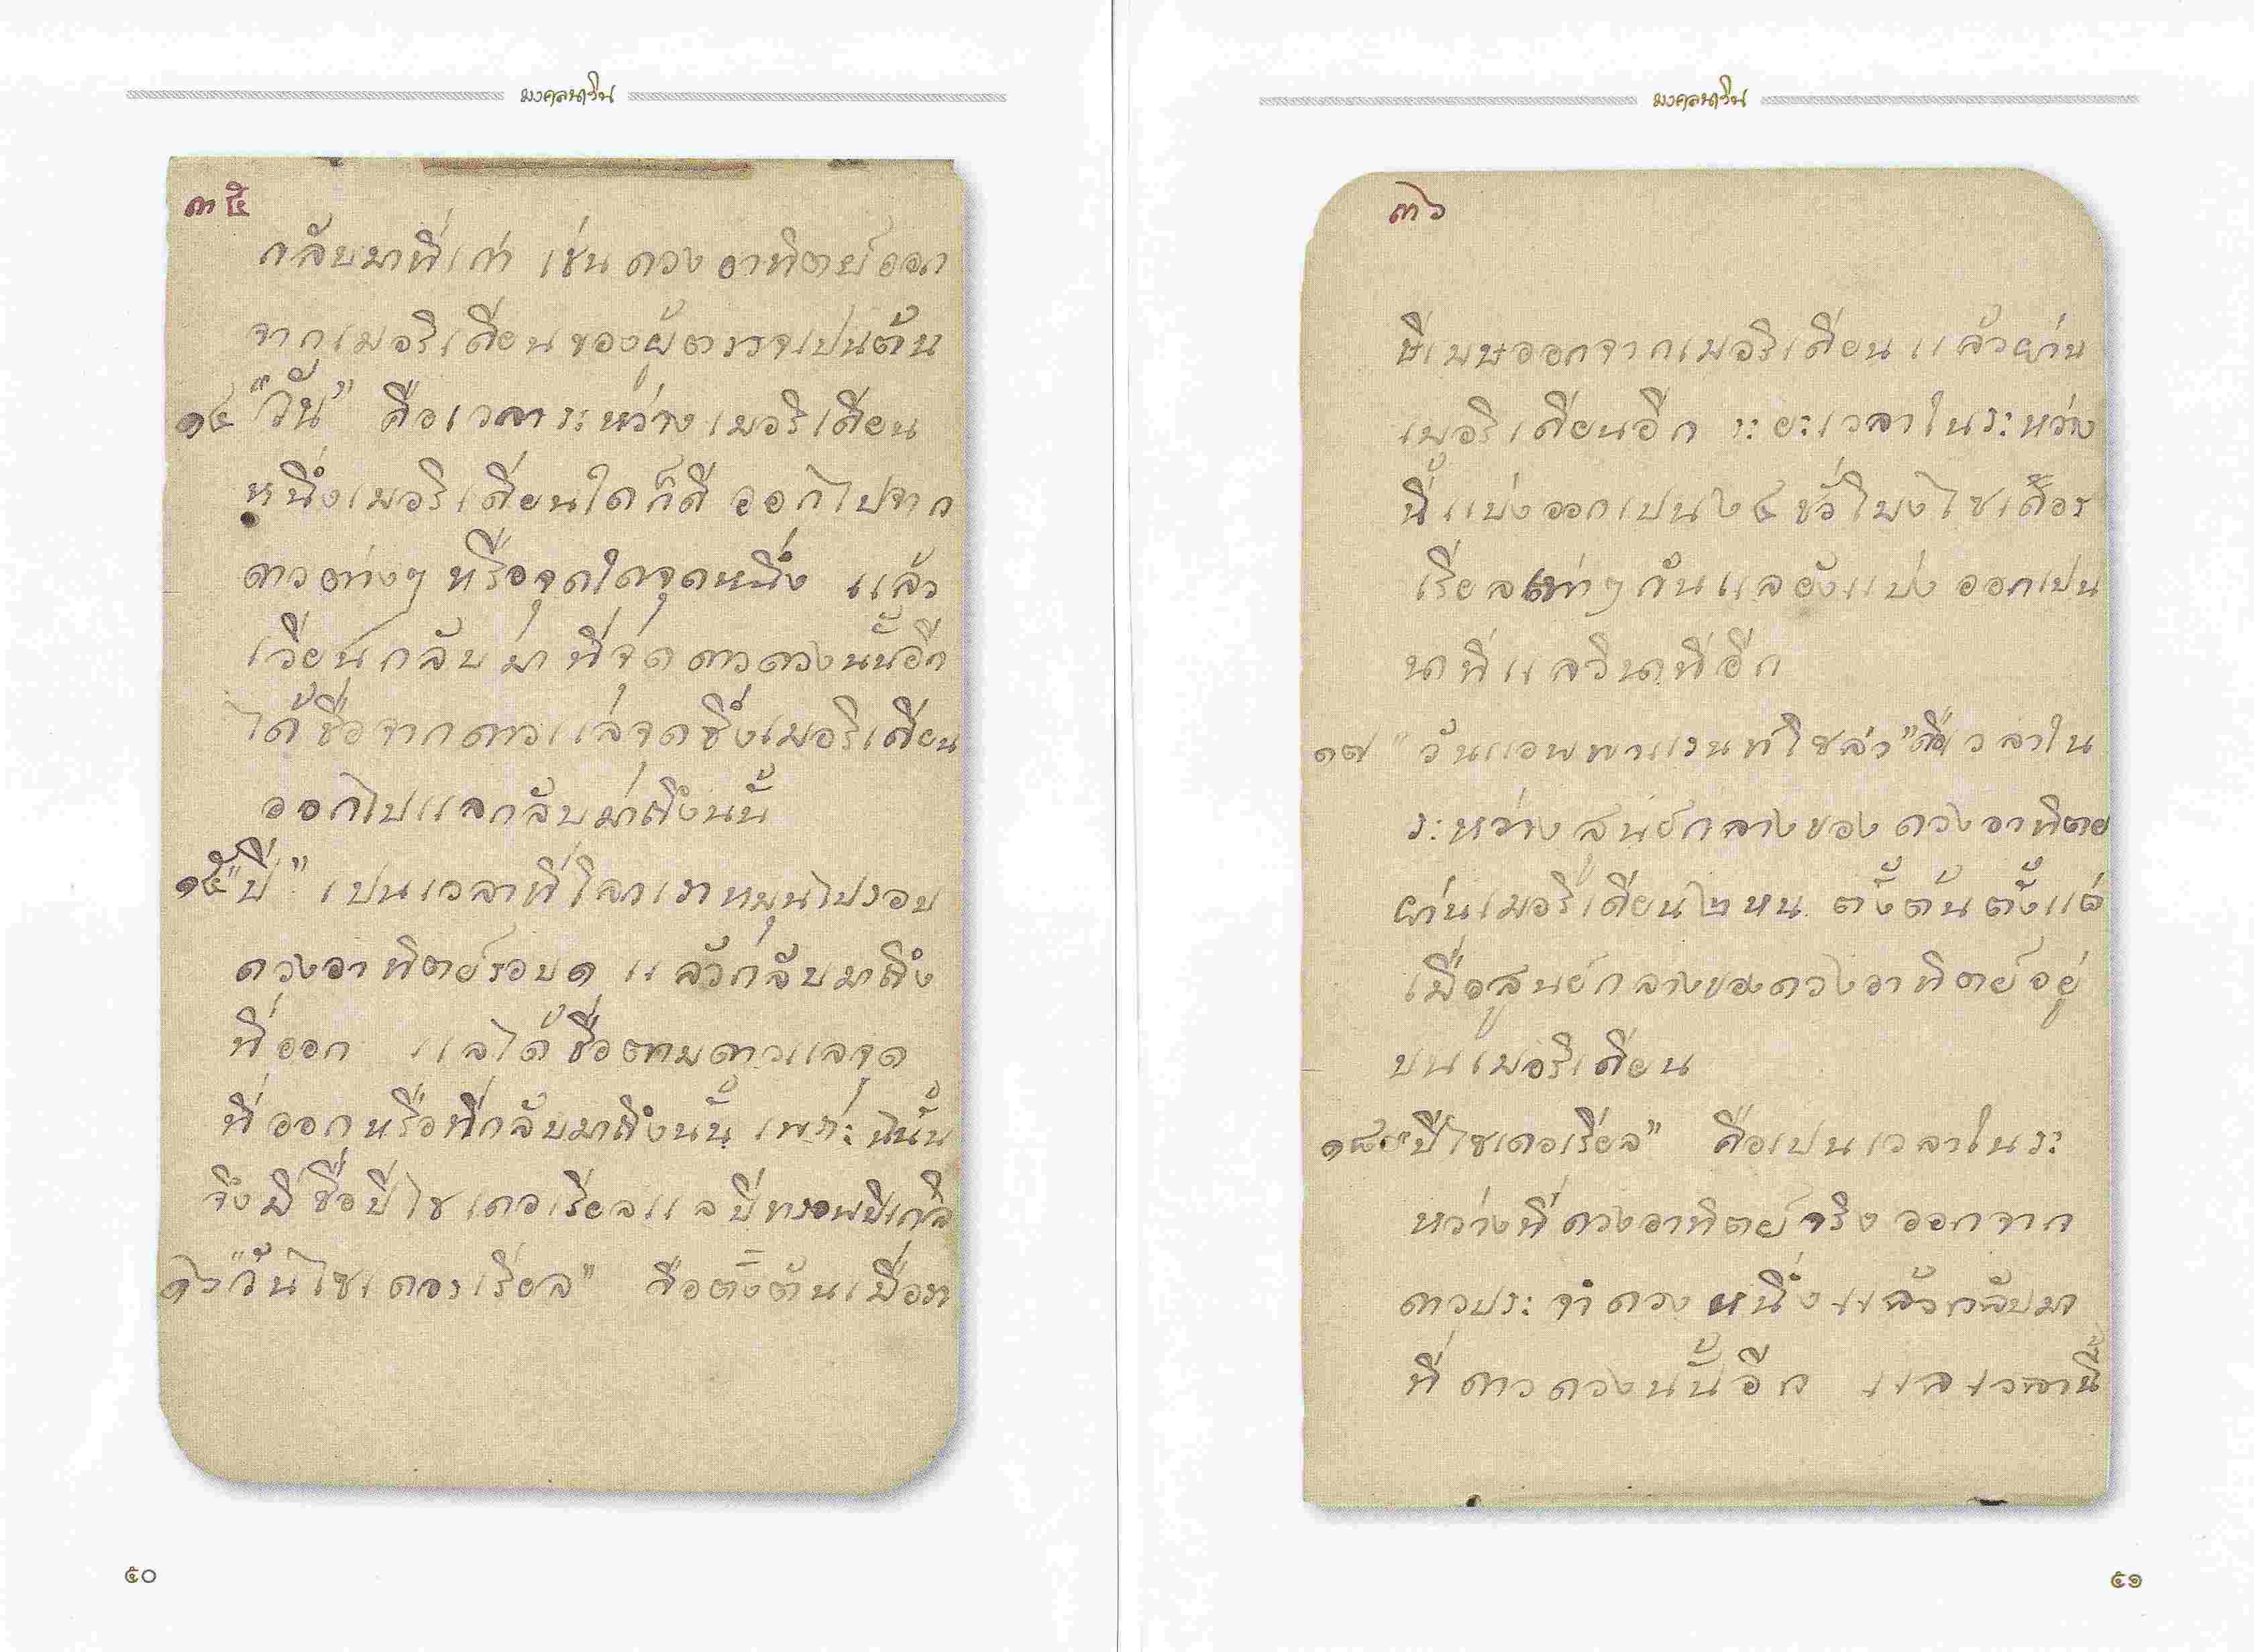 มงคลนาวิน
๓๕
กลับมาที่เก่า เช่น ดวงอาทิตย์ออก
จากเมอริเดียนของผู้ตรวจเปนต้น
๑๔ "วัน" คือเวลาระหว่างเมอริเดียน
หนึ่งเมอริเดียนใดก็ดี ออกไปจาก
ดาวต่างๆ หรือจุดใดจุดหนึ่ง แล้ว
เวียนกลับมาที่จุดดาวดวงนั้นอีก
ได้ชื่อจากดาวแลจุดซึ่งเมอริเดียน
ออกไปแลกลับมาถึงนั้น
๑๕ "ปี" เปนเวลาที่โลกเราหมุนไปรอบ
ดวงอาทิตย์รอบ๑ แล้วกลับมาถึง
ที่ออก แลได้ชื่อตามดาวแลจุด
ที่ออกหรือที่กลับมาถึงนั้น เพราะฉนั้น
จึงมีชื่อปีไซเดอเรียลแลปีทรอพปิเกิล
๑๖ "วันไซเดอรเรียล" คือตั้งต้นเมื่อรา
๕๐
มงคลนาวิน
๓๖
ษีเมษออกจากเมอริเดียน แล้วผ่าน
เมอริเดียนอีก ระยะเวลาในระหว่าง
นี้แบ่งออกเปน ๒๔ ชั่วโมงไซเดอร
เรียลเท่าๆ กันแลยังแบ่งออกเปน
นาทีแลวินาทีอีก
๑๗ "วันแอพพาเรนท์โซล่า" คือเวลาใน
ระหว่างสูนย์กลางของดวงอาทิตย
ผ่านเมอริเดียน ๒ หน ตั้งต้นตั้งแต่
เมื่อสูนย์กลางของดวงอาทิตย์อยู่
บนเมอริเดียน
๑๘ "ปีไซเดอเรียล" คือเปนเวลาในระ
หว่างที่ดวงอาทิตย์จริงออกจาก
ดาวประจำดวงหนึ่งแล้วกลับมา
ที่ดาวดวงนั้นอีก แลเวลานี้
๕๑